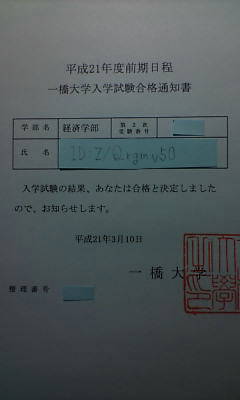 平成21年度前期日程
一橋大学入学試験合格通知書
学部名 経済学部 第2次受験番号
氏名 ID:Z/Qrgmv50
入学試験の結果、あなたは合格と決定しました
ので、お知らせします。
平成21年3月10日
一橋大学
整理番号